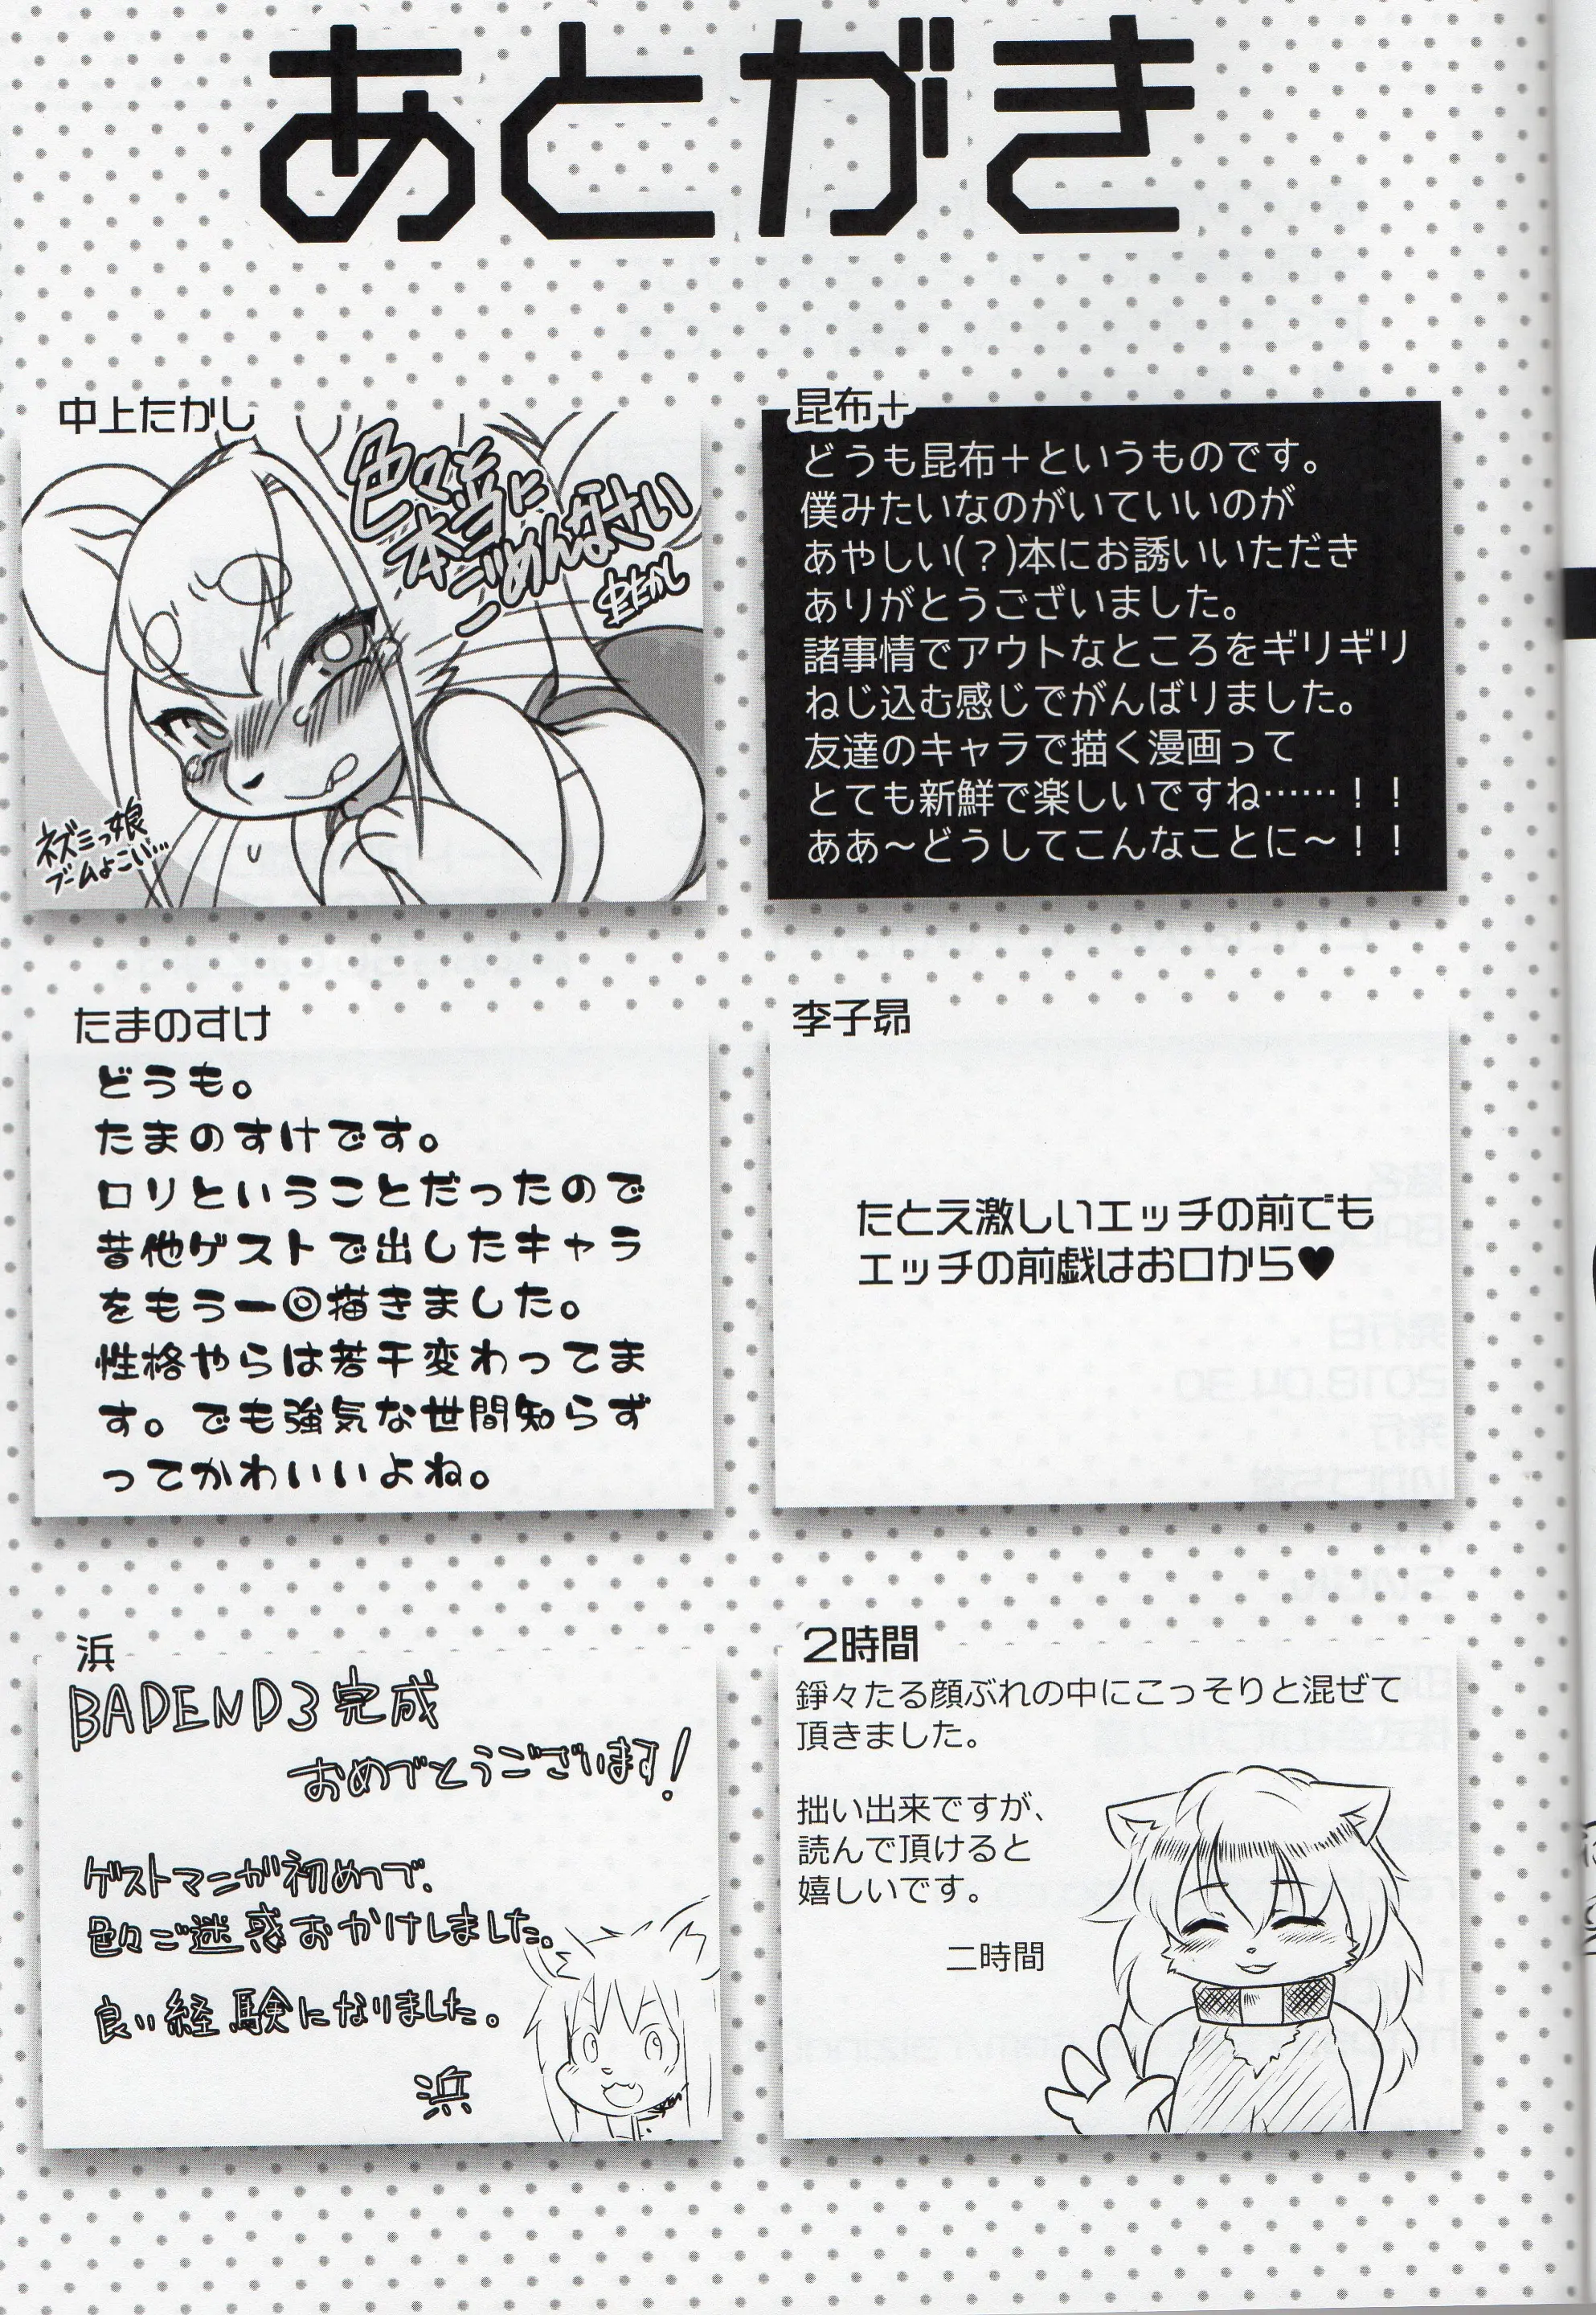 あとがき
中上たかし
色々本当に
ごめんなさい
ネズミっ娘
ブームよこい…
昆布+
どうも昆布+というものです。
僕みたいなのがいていいのが
あやしい(?)本にお誘いいただき
ありがとうございました。
諸事情でアウトなところをギリギリ
ねじ込む感じでがんばりました。
友達のキャラで描く漫画って
とても新鮮で楽しいですね……!!
ああ〜どうしてこんなことに〜!!
たまのすけ
どうも。
たまのすけです。
ロリということだったので
昔他ゲストで出したキャラ
をもう一回描きました。
性格やらは若干変わってま
す。でも強気な世間知らず
ってかわいいよね。
李子昴
たとえ激しいエッチの前でも
エッチの前戯はお口から♥
浜
BADEND3完成
おめでとうございます!
ゲストマンガ初めてで、
色々ご迷惑おかけしました。
良い経験になりました。
浜
2時間
錚々たる顔ぶれの中にこっそりと混ぜて
頂きました。
拙い出来ですが、
読んで頂けると
嬉しいです。
二時間